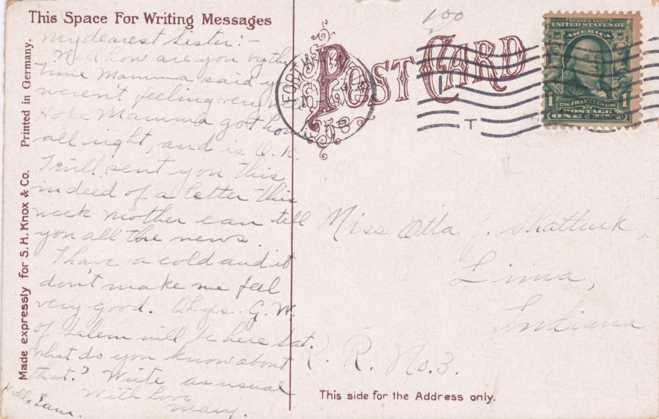 This Space For Writing Messages
My dearest Sister:-
Well how are you by the
time Mamma said you
weren't feeling very
Mamma got home
all right, and is O.K.
I will sent you this
indeed of a letter this
week mother can tell
you all the news.
I have a cold and it
don't make me feel
very good. Chas. G. W.
of them will be here Sat.
what do you know about
that? Write as usual
With Love
Mary.
Made expressly for S. H. Knox & Co. Printed in Germany.
100
POST CARD
FORT
UNITED STATES OF
AMERICA
POSTAGE
ONE
T
Miss Otta Shattuck,
Lima,
Indiana
R. R. No. 3.
This side for the Address only.